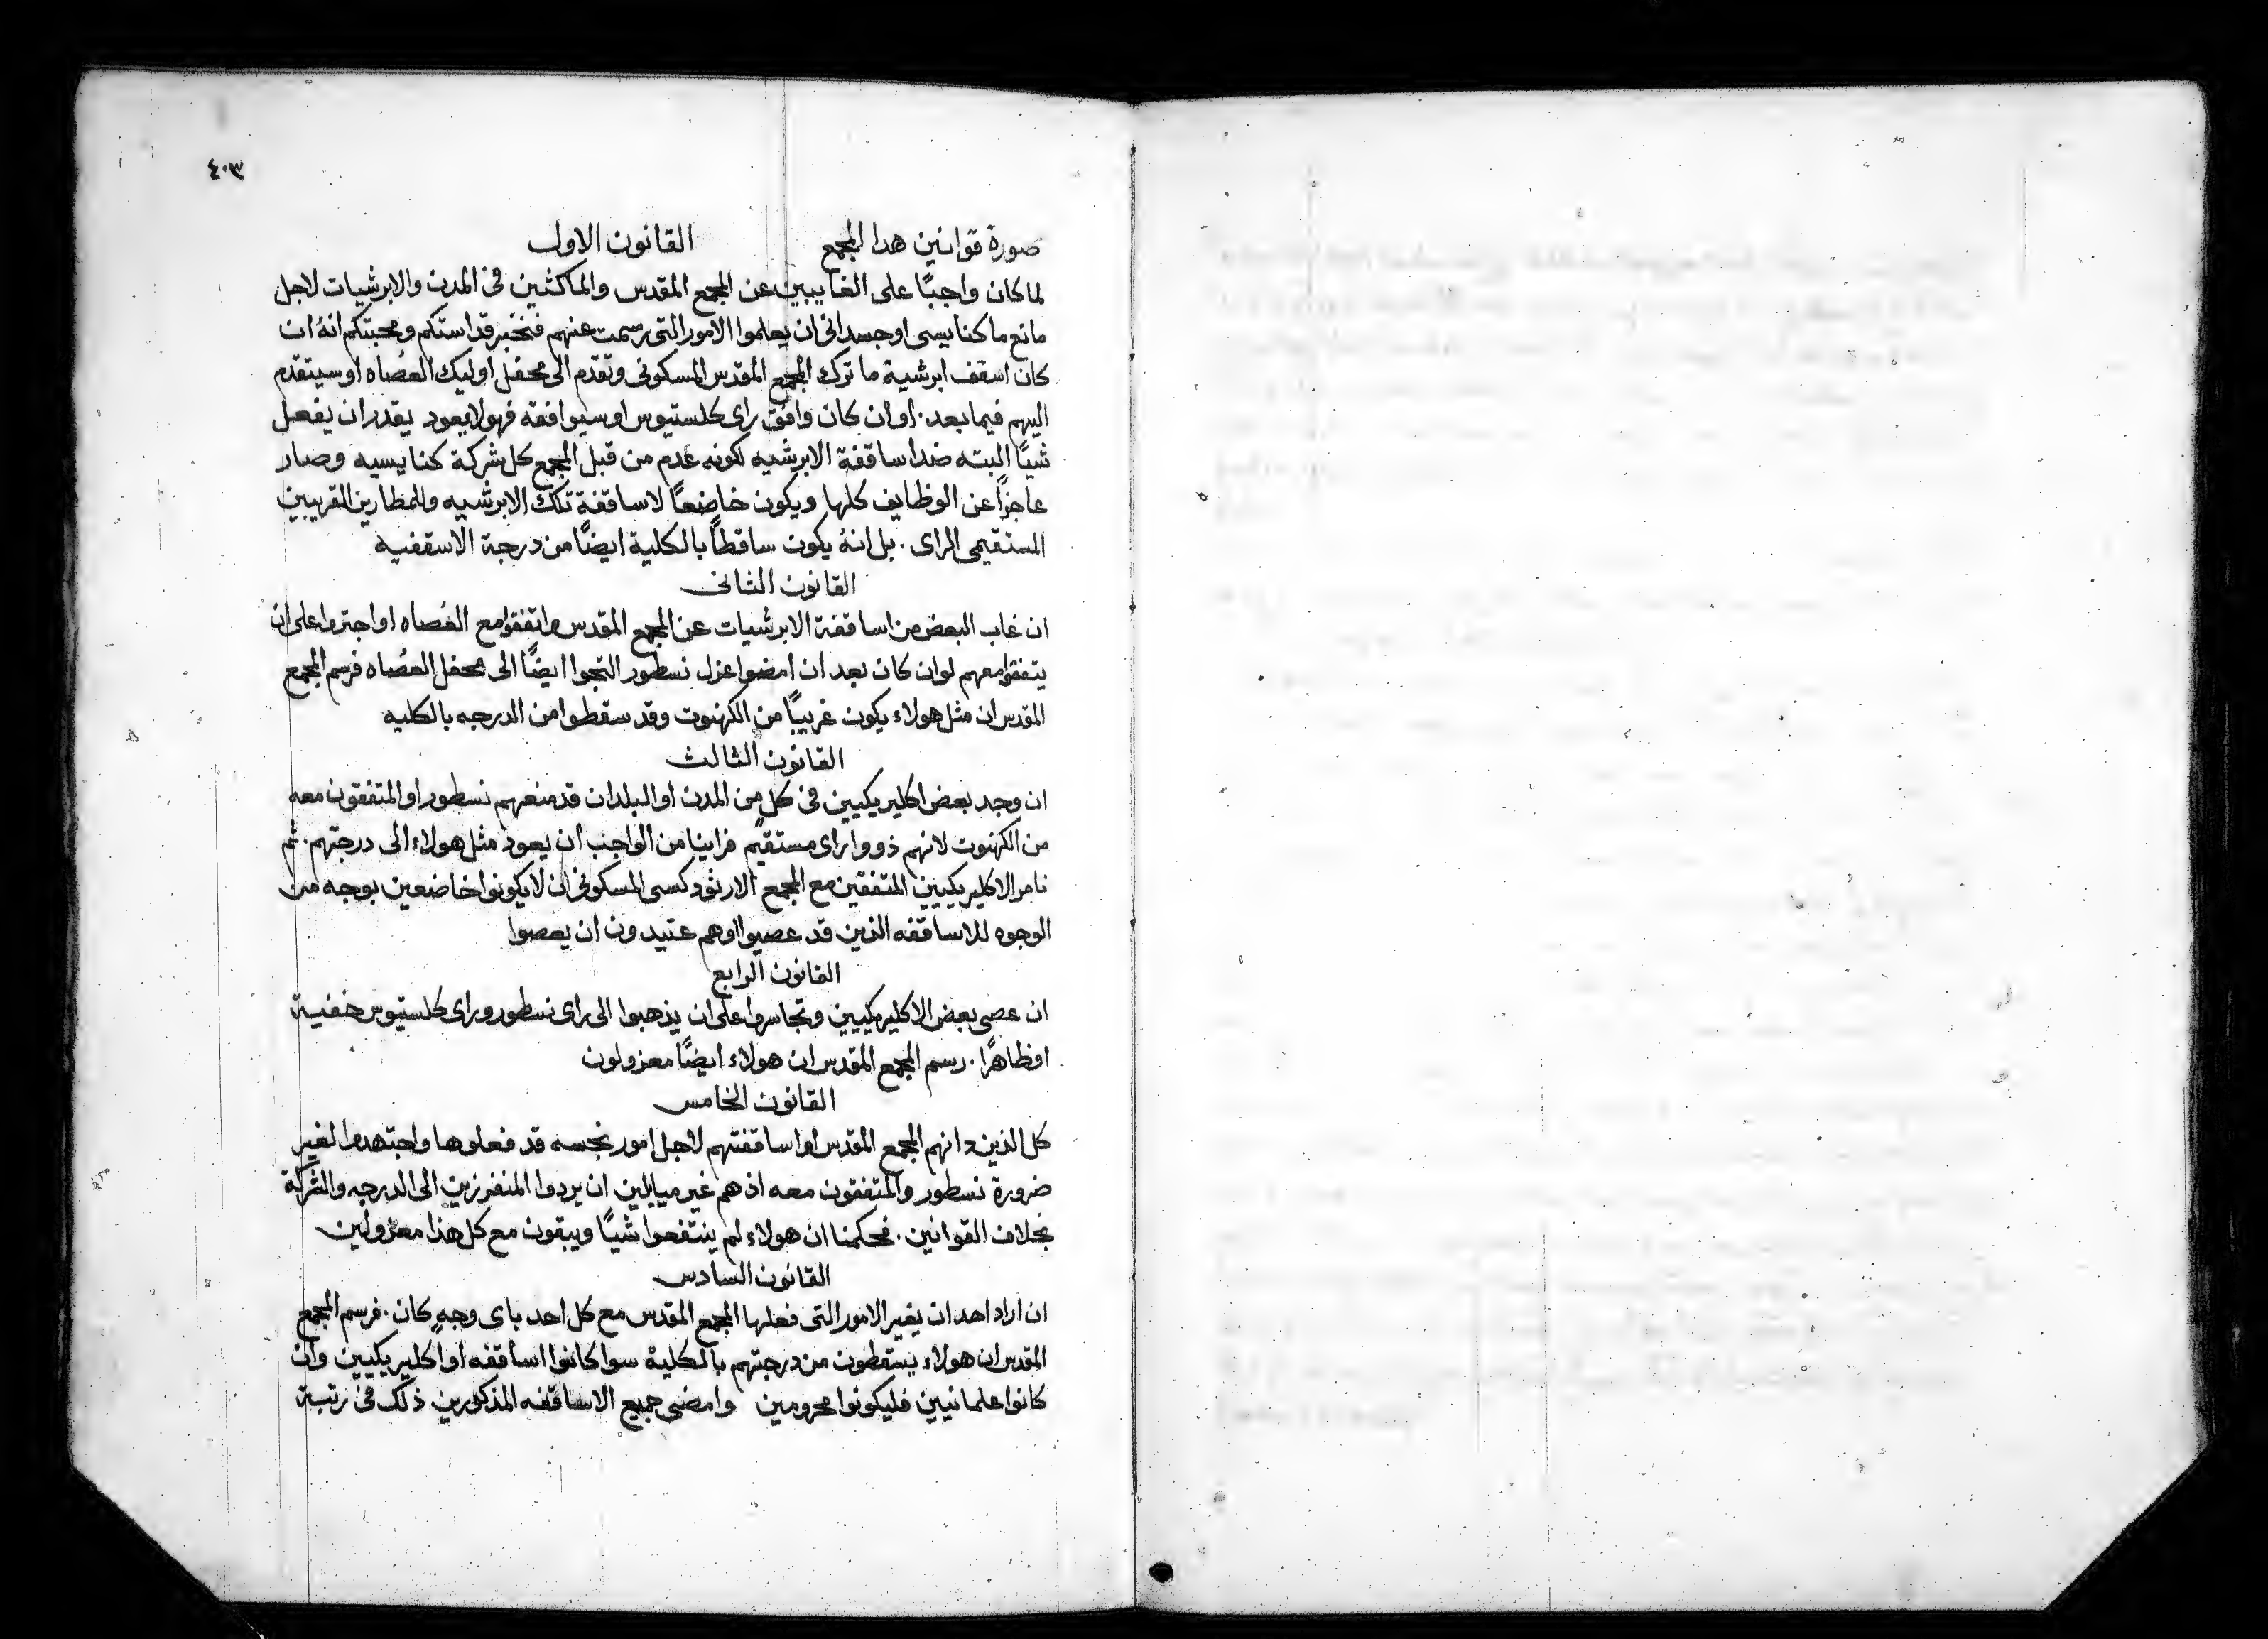 ٤٠٣
صورة قوانين هدا المجمع القانون الاول
لما كان واجبًا على الغايبين عن المجمع المقدس والماكثين في المدن والابرشيات لاجل
مانع ما كنايسى او جسدانى ان يعلموا الامور التى رسمت عنهم فنخبر قداستكم ومحبتكم انهُ ان
كان اسقف ابرشية ما ترك المجمع المقدس المسكونى وتقدم الى محفل اوليك العُصاه او سيتقدم
اليهم فيما بعد. او ان كان وافق راى كلستيوس او سيوافقه فهو لا يعود يقدر ان يفعل
شيًا البته ضد اساقفة الابرشيه لكونه عدم من قبل المجمع كل شركة كنايسيه وصار
عاجزًا عن الوظايف كلها ويكون خاضعًا لاساقفة تلك الابرشيه وللمطارين القريبين
المستقيمى الراى. بل انهُ يكون ساقطًا بالكلية ايضًا من درجة الاسقفيه
القانون الثانى
ان غاب البعض من اساقفة الابرشيات عن المجمع المقدس واتفقوا مع العُصاه او اجتروا على ان
يتفقوا معهم لو ان كان بعد ان امضوا عزل نسطور التجوا ايضًا الى محفل العصُاه فرسم المجمع
المقدس ان مثل هولاء يكون غريبًا من الكهنوت وقد سقطوا من الدرجه بالكليه
القانون الثالث
ان وجد بعض اكليريكيين فى كلٍ من المدن او البلدان قد منعهم نسطور او المتفقون معه
من الكهنوت لانهم ذووا راى مستقيم فراينا من الواجب ان يعود مثل هولاء الى درجتهم. ثم
نامر الاكليريكيين المتفقين مع المجمع الارثودكسى المسكونى ان لا يكونوا خاضعين بوجه من
الوجوه للاساقفه الذين قد عصيوا اوهم عتيدون ان يعصوا
القانون الرابع
ان عصى بعض الاكليريكيين وتجاسروا على ان يذهبوا الى راى نسطور وراى كلستيوس خفية
اوظاهرًا. رسم المجمع المقدس ان هولاء ايضًا معزولون
القانون الخامس
كل الذين دانهم المجمع المقدس او اساقفتهم لاجل امور نجسه قد فعلوها واجتهدوا لغير
ضرورة نسطور والمتفقون معه اذ هم غير مبايلين ان يردوا المنفرزين الى الدرجه والشركة
بخلاف القوانين. فحكمنا ان هولاء لم ينتفعوا شيًا ويبقون مع كل هذا معزولين
القانون السادس
ان اراد احد ان يغير الامور التى فعلها المجمع المقدس مع كل احد باى وجهٍ كان. فرسم المجمع
المقدس ان هولاء يستقطون من درجتهم بالكلية سوا كانوا اساقفه او اكليريكيين وان
كانوا علمانيين فليكونوا محرومين وامضى جميع الاساقفه المذكورين ذلك فى رتبة